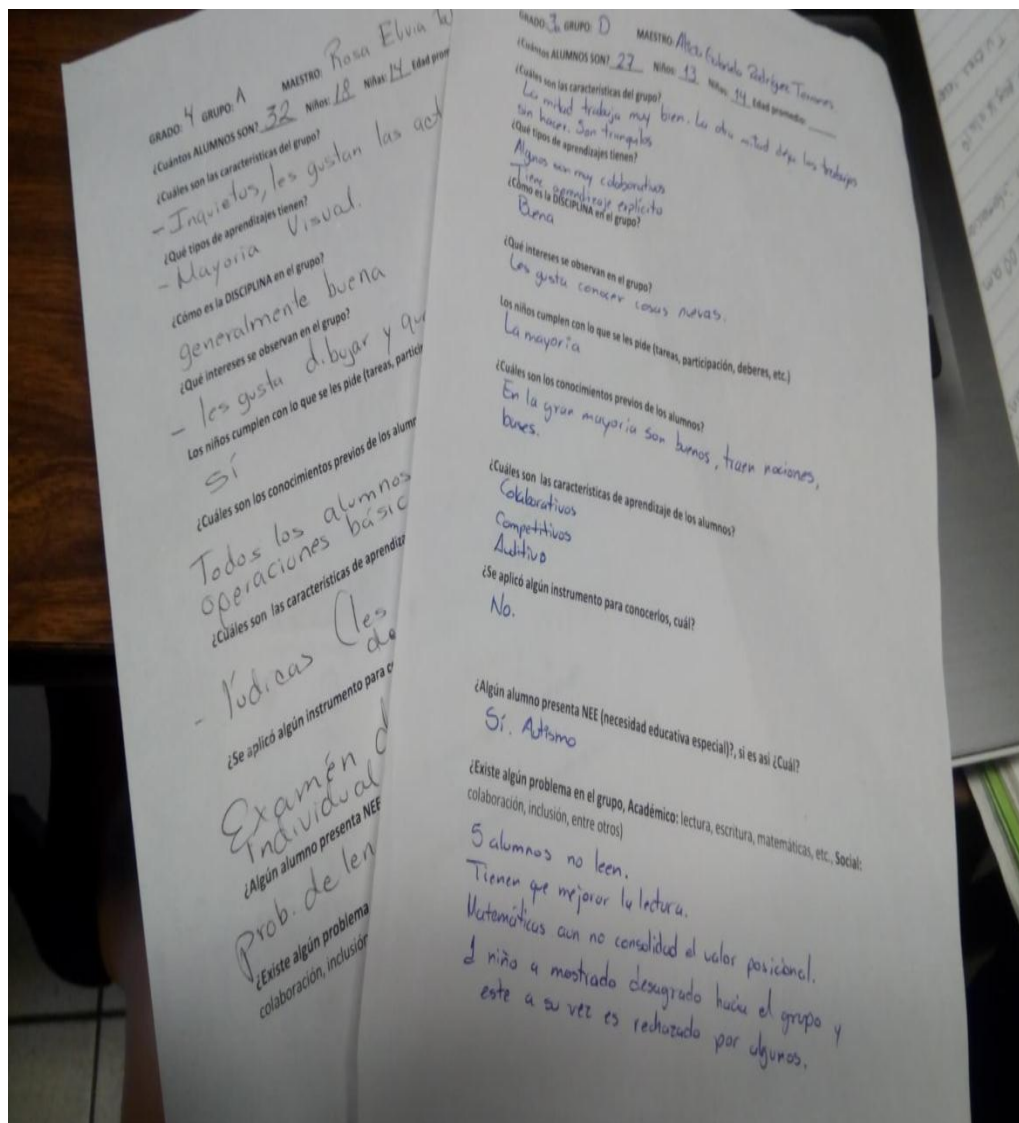 GRADO: 4 GRUPO: A MAESTRO: Rosa Elvia
¿Cuántos ALUMNOS SON? 32 Niños: 18 Niñas: 14 Edad prom
¿Cuáles son las características del grupo?
- Inquietos, les gustan las act
¿Qué tipos de aprendizajes tienen?
- Mayoria Visual.
¿Cómo es la DISCIPLINA en el grupo?
generalmente buena
¿Qué intereses se observan en el grupo?
- les gusta dibujar y que
Los niños cumplen con lo que se les pide (tareas, particip
SÍ
¿Cuáles son los conocimientos previos de los alumn
Todos los alumnos
operaciones básic
¿Cuáles son las características de aprendiza
- lúdicas (les
¿Se aplicó algún instrumento para c
Examén d
Individual
¿Algún alumno presenta NEE
Prob. de len
¿Existe algún problema
colaboración, inclusión
GRADO: 3o GRUPO: D MAESTRO: Gabriela Rodríguez
¿Cuántos ALUMNOS SON? 27 Niños: 13 Niñas: 14 Edad promedio:
¿Cuáles son las características del grupo?
La mitad trabaja muy bien. La otra mitad deja los trabajos
sin hacer. Son tranquilos
¿Qué tipos de aprendizajes tienen?
Algnos son muy colaborativos
Tiene aprendizaje explícito
¿Cómo es la DISCIPLINA en el grupo?
Buena
¿Qué intereses se observan en el grupo?
Les gusta conocer cosas nuevas.
Los niños cumplen con lo que se les pide (tareas, participación, deberes, etc.)
La mayoria
¿Cuáles son los conocimientos previos de los alumnos?
En la gran mayoria son buenos, traen nociones,
bases.
¿Cuáles son las características de aprendizaje de los alumnos?
Colaborativos
Competitivos
Auditivo
¿Se aplicó algún instrumento para conocerlos, cuál?
No.
¿Algún alumno presenta NEE (necesidad educativa especial)?, si es asi ¿Cuál?
Sí. Autismo
¿Existe algún problema en el grupo, Académico: lectura, escritura, matemáticas, etc., Social:
colaboración, inclusión, entre otros)
5 alumnos no leen.
Tienen que mejorar la lectura.
Matemáticas aun no consolidad el valor posicional.
1 niño a mostrado desagrado hacia el grupo y
este a su vez es rechazado por algunos.